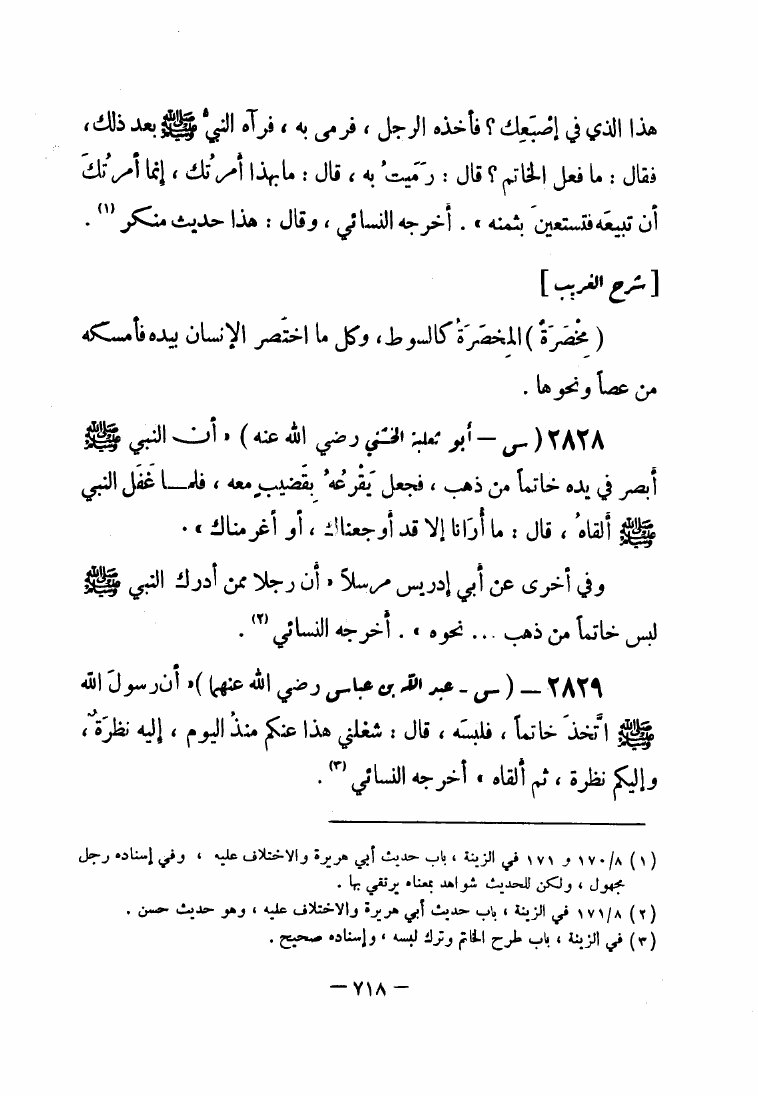 هذا الذي في إصْبَعِك ؟ فأخذه الرجل ، فرمى به ، فرآه النبيُّ ﷺ بعد ذلك ،
فقال : ما فعل الخاتم ؟ قال : رَمَيتُ به ، قال : ما بهذا أمرتُك ، إنما أمرتُكَ
أن تبيعَه فتستعينَ بثمنه » . أخرجه النسائي ، وقال : هذا حديث منكر (١) .
[ شرح الغريب ]
( مِخْصَرَةٌ ) المِخصَرَةُ كالسوط ، وكل ما اختَصر الإنسان بيده فأمسكه
من عصاً ونحوها .
٢٨٢٨ ( س – أبو ثعلبة الخشني رضي الله عنه ) « أن النبي ﷺ
أبصر في يده خاتماً من ذهب ، فجعل يَقْرعُهُ بِقَضيبٍ معه ، فلمــا غَفَل النبي
ﷺ ألقاهُ ، قال : ما أُرَانا إلا قد أوجعناك ، أو أغرمناك » .
وفي أخرى عن أبي إدريس مرسلاً « أن رجلا ممن أدرك النبي ﷺ
لبس خاتماً من ذهب ... نحوه » . أخرجه النسائي (٢) .
٢٨٢٩ – ( س – عبد الله بن عباس رضي الله عنهما ) « أن رسولَ الله
ﷺ اتَّخذَ خاتماً ، فلبسَه ، قال : شغلني هذا عنكم منذُ اليوم ، إليه نظرَةٌ ،
وإليكم نظرة ، ثم ألقاه » أخرجه النسائي (٣) .
(١) ٨/ ١٧٠ و ١٧١ في الزينة ، باب حديث أبي هريرة والاختلاف عليه ، وفي إسناده رجل
مجهول ، ولكن للحديث شواهد بمعناه يرتقي بها .
(٢) ٨/ ١٧١ في الزينة ، باب حديث أبي هريرة والاختلاف عليه ، وهو حديث حسن .
(٣) في الزينة ، باب طرح الخاتم وترك لبسه ، وإسناده صحيح .
– ٧١٨ –